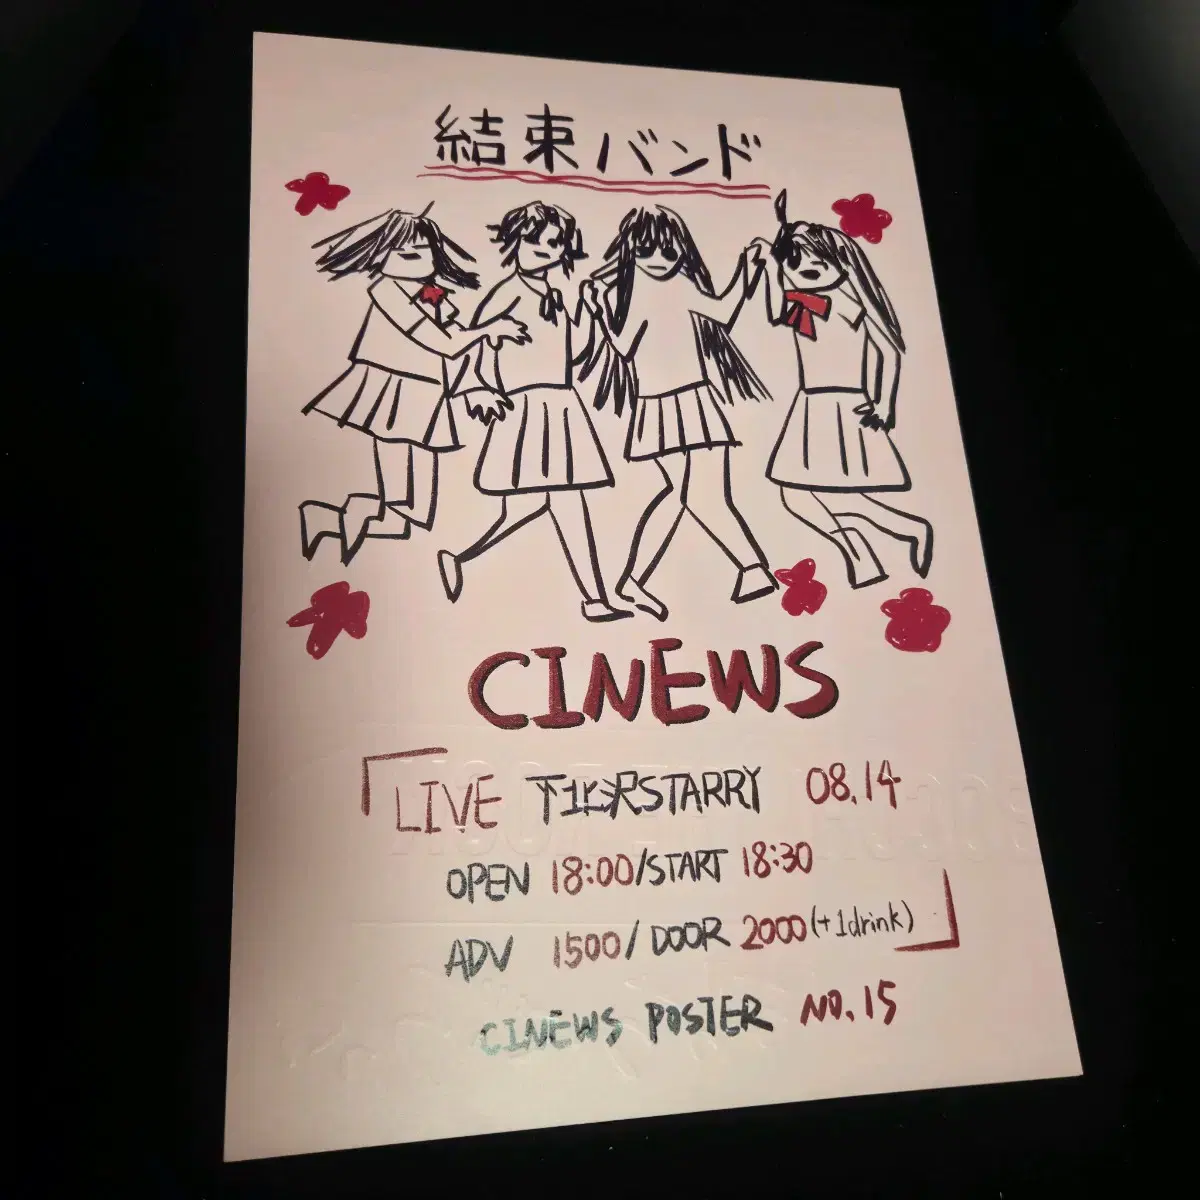 結束バンド
CINEWS
「LIVE 下北沢STARRY 08.14
OPEN 18:00/START 18:30
ADV 1500/DOOR 2000(+1drink)」
CINEWS POSTER NO.15